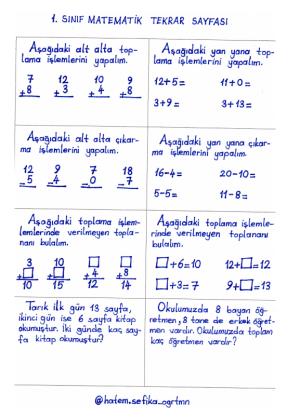 1. SINIF MATEMATİK TEKRAR SAYFASI
Aşağıdaki alt alta top-
lama işlemlerini yapalım.
7 12 10 9
+8 +3 +4 +8
Aşağıdaki yan yana top-
lama işlemlerini yapalım.
12+5= 11+0=
3+9= 3+13=
Aşağıdaki alt alta çıkar-
ma işlemlerini yapalım.
12 9 7 18
-5 -4 -0 -7
Aşağıdaki yan yana çıkar-
ma işlemlerini yapalım.
16-4= 20-10=
5-5= 11-8=
Aşağıdaki toplama işlem-
lemlerinde verilmeyen topla-
nanı bulalım.
3 10 □ □
+□ +□ +4 +8
10 15 12 14
Aşağıdaki toplama işlemle-
rinde verilmeyen toplananı
bulalım.
□+6=10 12+□=12
□+3=7 9+□=13
Tarık ilk gün 13 sayfa,
ikinci gün ise 6 sayfa kitap
okumuştur. İki günde kaç say-
fa kitap okumuştur?
Okulumuzda 8 bayan öğ-
retmen, 8 tane de erkek öğret-
men vardır. Okulumuzda toplam
kaç öğretmen vardır?
@hatem.sefika_ogrtmn